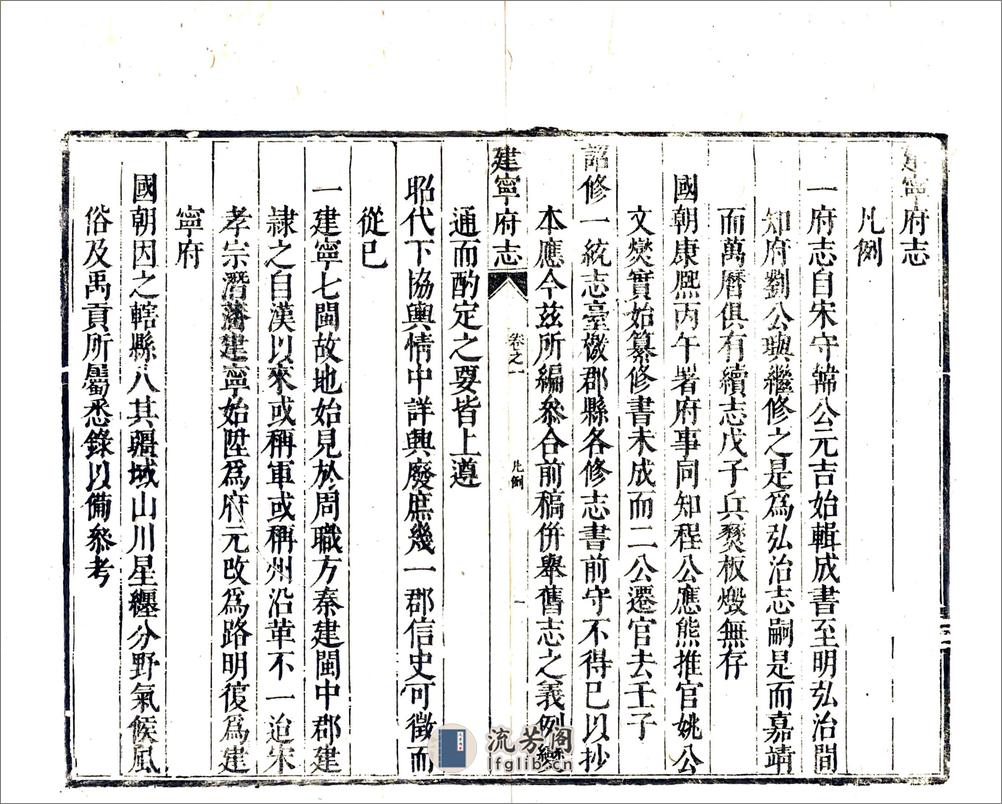 建寧府志
凡例
一府志自宋守韓公元吉始輯成書至明弘治間
知府劉公璵繼修之是為弘治志嗣是而嘉靖
而萬曆俱有續志戊子兵燹板燬無存
國朝康熙丙午署府事同知程公應熊推官姚公
文燮實始纂修書未成而二公遷官去壬子
詔修一統志臺檄郡縣各修志書前守不得已以抄
本應今茲所編叅合前稿併舉舊志之義例變
建寧府志 卷之一 凡例 一
通而酌定之要皆上遵
昭代下協輿情中詳興廢庶幾一郡信史可徵而
從已
一建寧七閩故地始見於周職方秦建閩中郡建
隷之自漢以來或稱軍或稱州沿革不一迨宋
孝宗潛藩建寧始陞為府元改為路明復為建
寧府
國朝因之轄縣八其疆域山川星纏分野氣候風
俗及禹貢所屬悉錄以備叅考
流芳阁
lfglib.cn